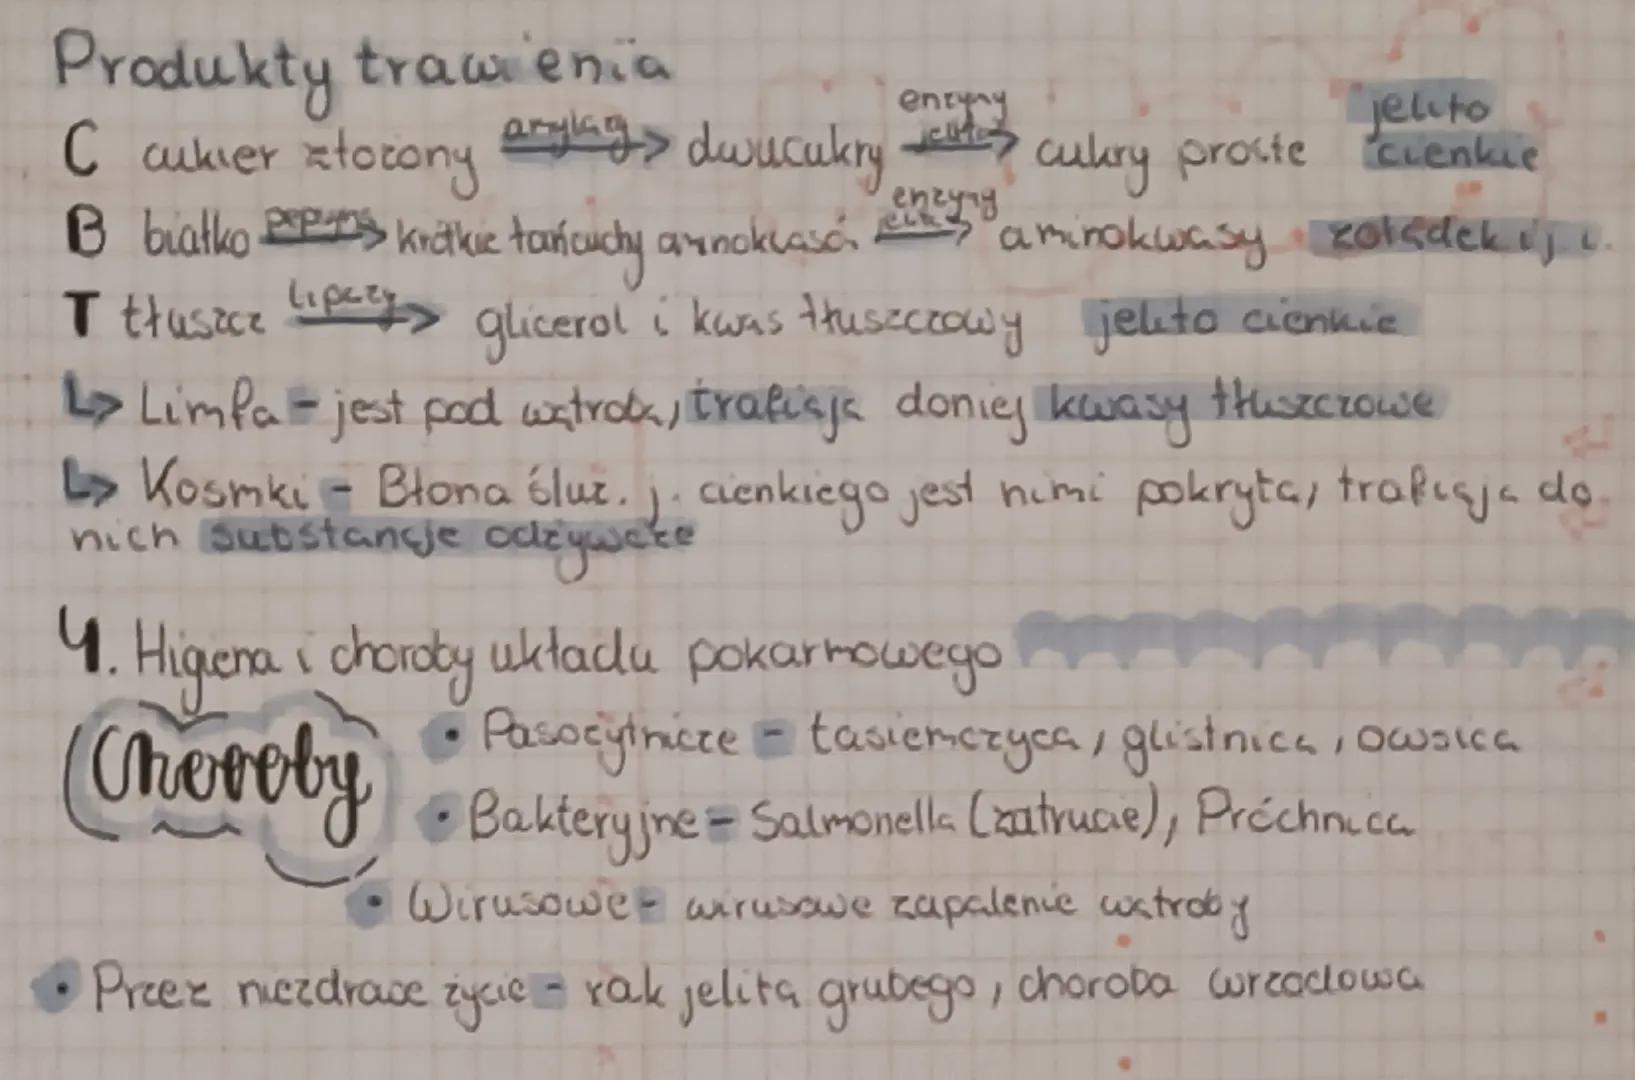 Produkty trawienia
C cukier złożony amylazy → dwucukry enzymy jelita → cukry proste jelito cienkie
B białko pepsyna → krótkie łańcuchy aminokwasów enzymy jelita → aminokwasy żołądek i j. c.
T tłuszcz lipazy → glicerol i kwas tłuszczowy jelito cienkie
↳ Limfa - jest pod wątrobą, trafiają doniej kwasy tłuszczowe
↳ Kosmki - Błona śluz. j. cienkiego jest nimi pokryta, trafiają do
nich substancje odżywcze
4. Higiena i choroby układu pokarmowego
Choroby
• Pasożytnicze - tasiemczyca, glistnica, owsica
• Bakteryjne - Salmonella (zatrucie), Próchnica
• Wirusowe - wirusowe zapalenie wątroby
• Przez niezdrace życie - rak jelita grubego, choroba wrzodowa